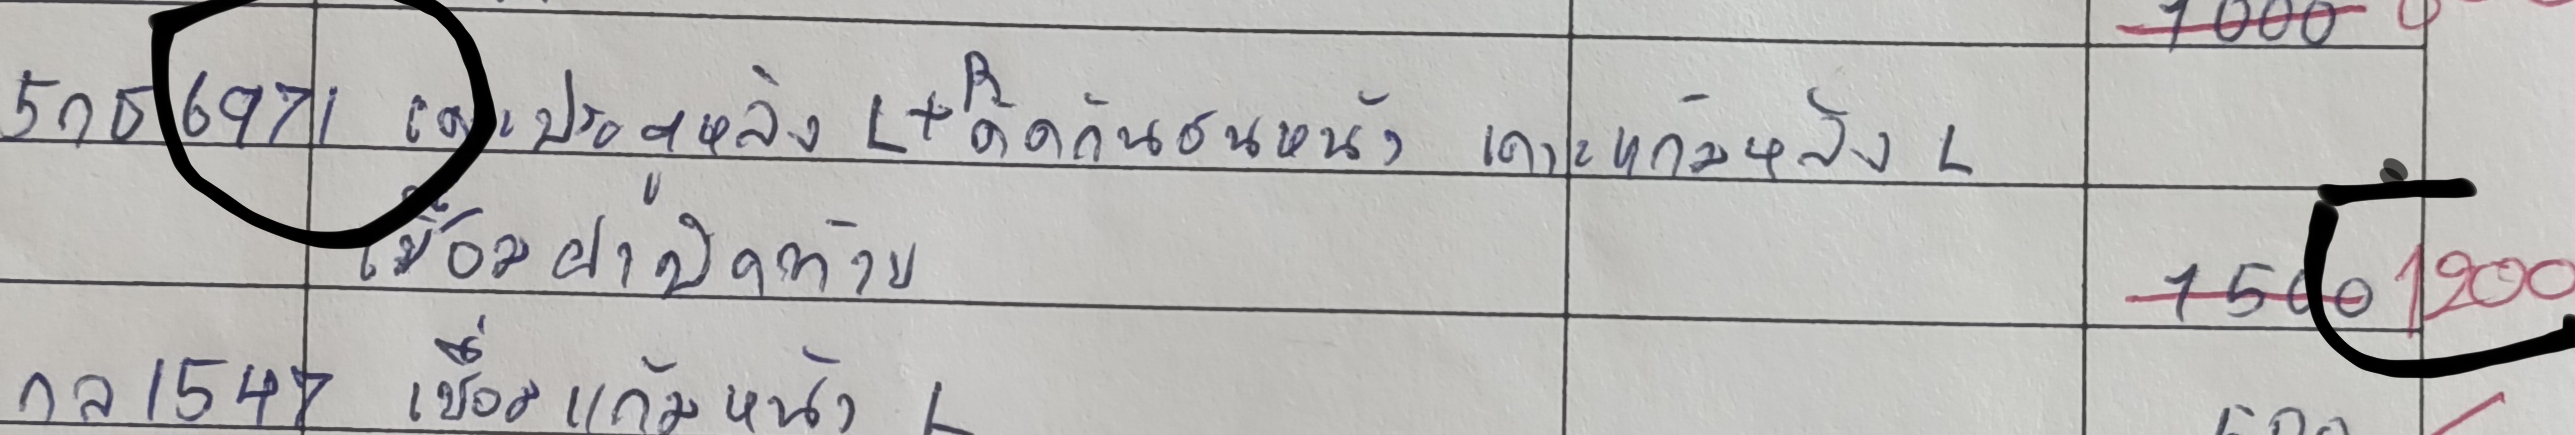 1000
5กธ 6971 เคาะประตูหลัง L+R ดัดกันชนหน้า เคาะแก้มหลัง L
เชื่อมฝาปิดท้าย
1500 1200
กล 1547 เชื่อมแก้มหน้า L
500